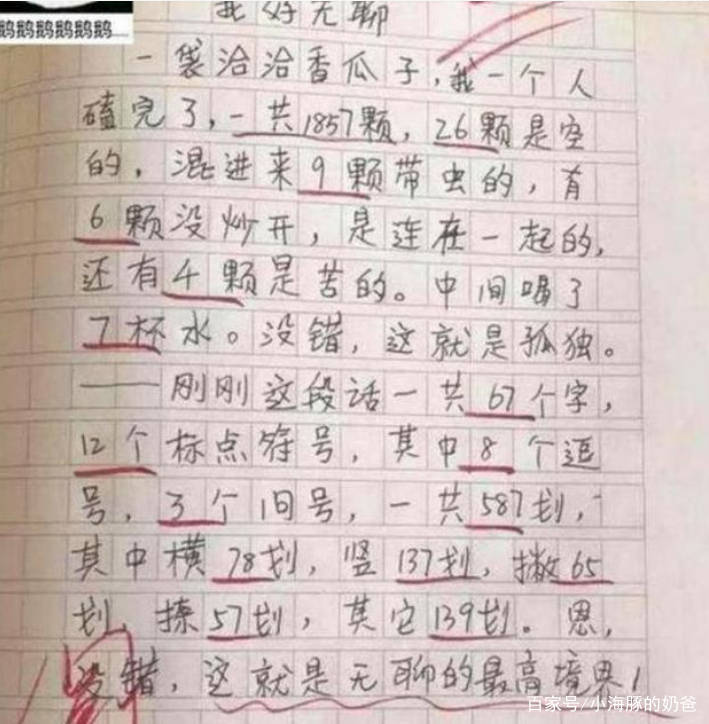 鹅鹅鹅鹅鹅鹅......
我好无聊
一袋洽洽香瓜子,我一个人
磕完了,一共1857颗,26颗是空
的,混进来9颗带虫的,有
6颗没炒开,是连在一起的,
还有4颗是苦的。中间喝了
7杯水。没错,这就是孤独。
——刚刚这段话一共67个字,
12个标点符号,其中8个逗
号,3个句号,一共587划,
其中横78划,竖137划,撇65
划,捺57划,其它139划。恩,
没错,这就是无聊的最高境界!
百家号/小海豚的奶爸